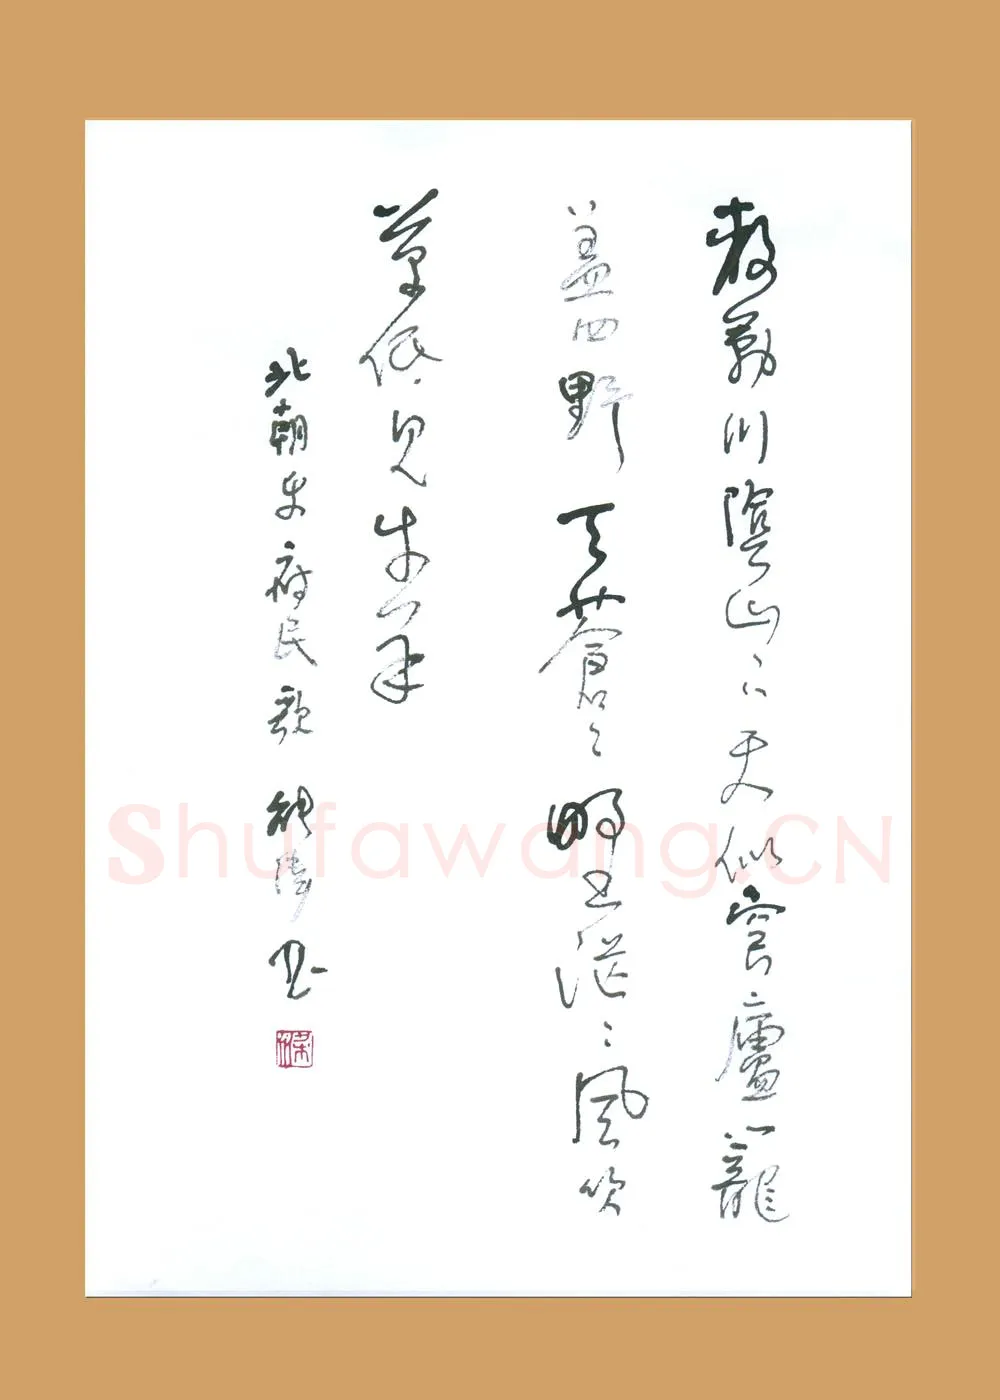 敕勒川陰山下天似穹廬籠
盖四野天蒼々野茫々風吹
草低見牛羊
北朝乐府民歌 书
Shufawang.CN